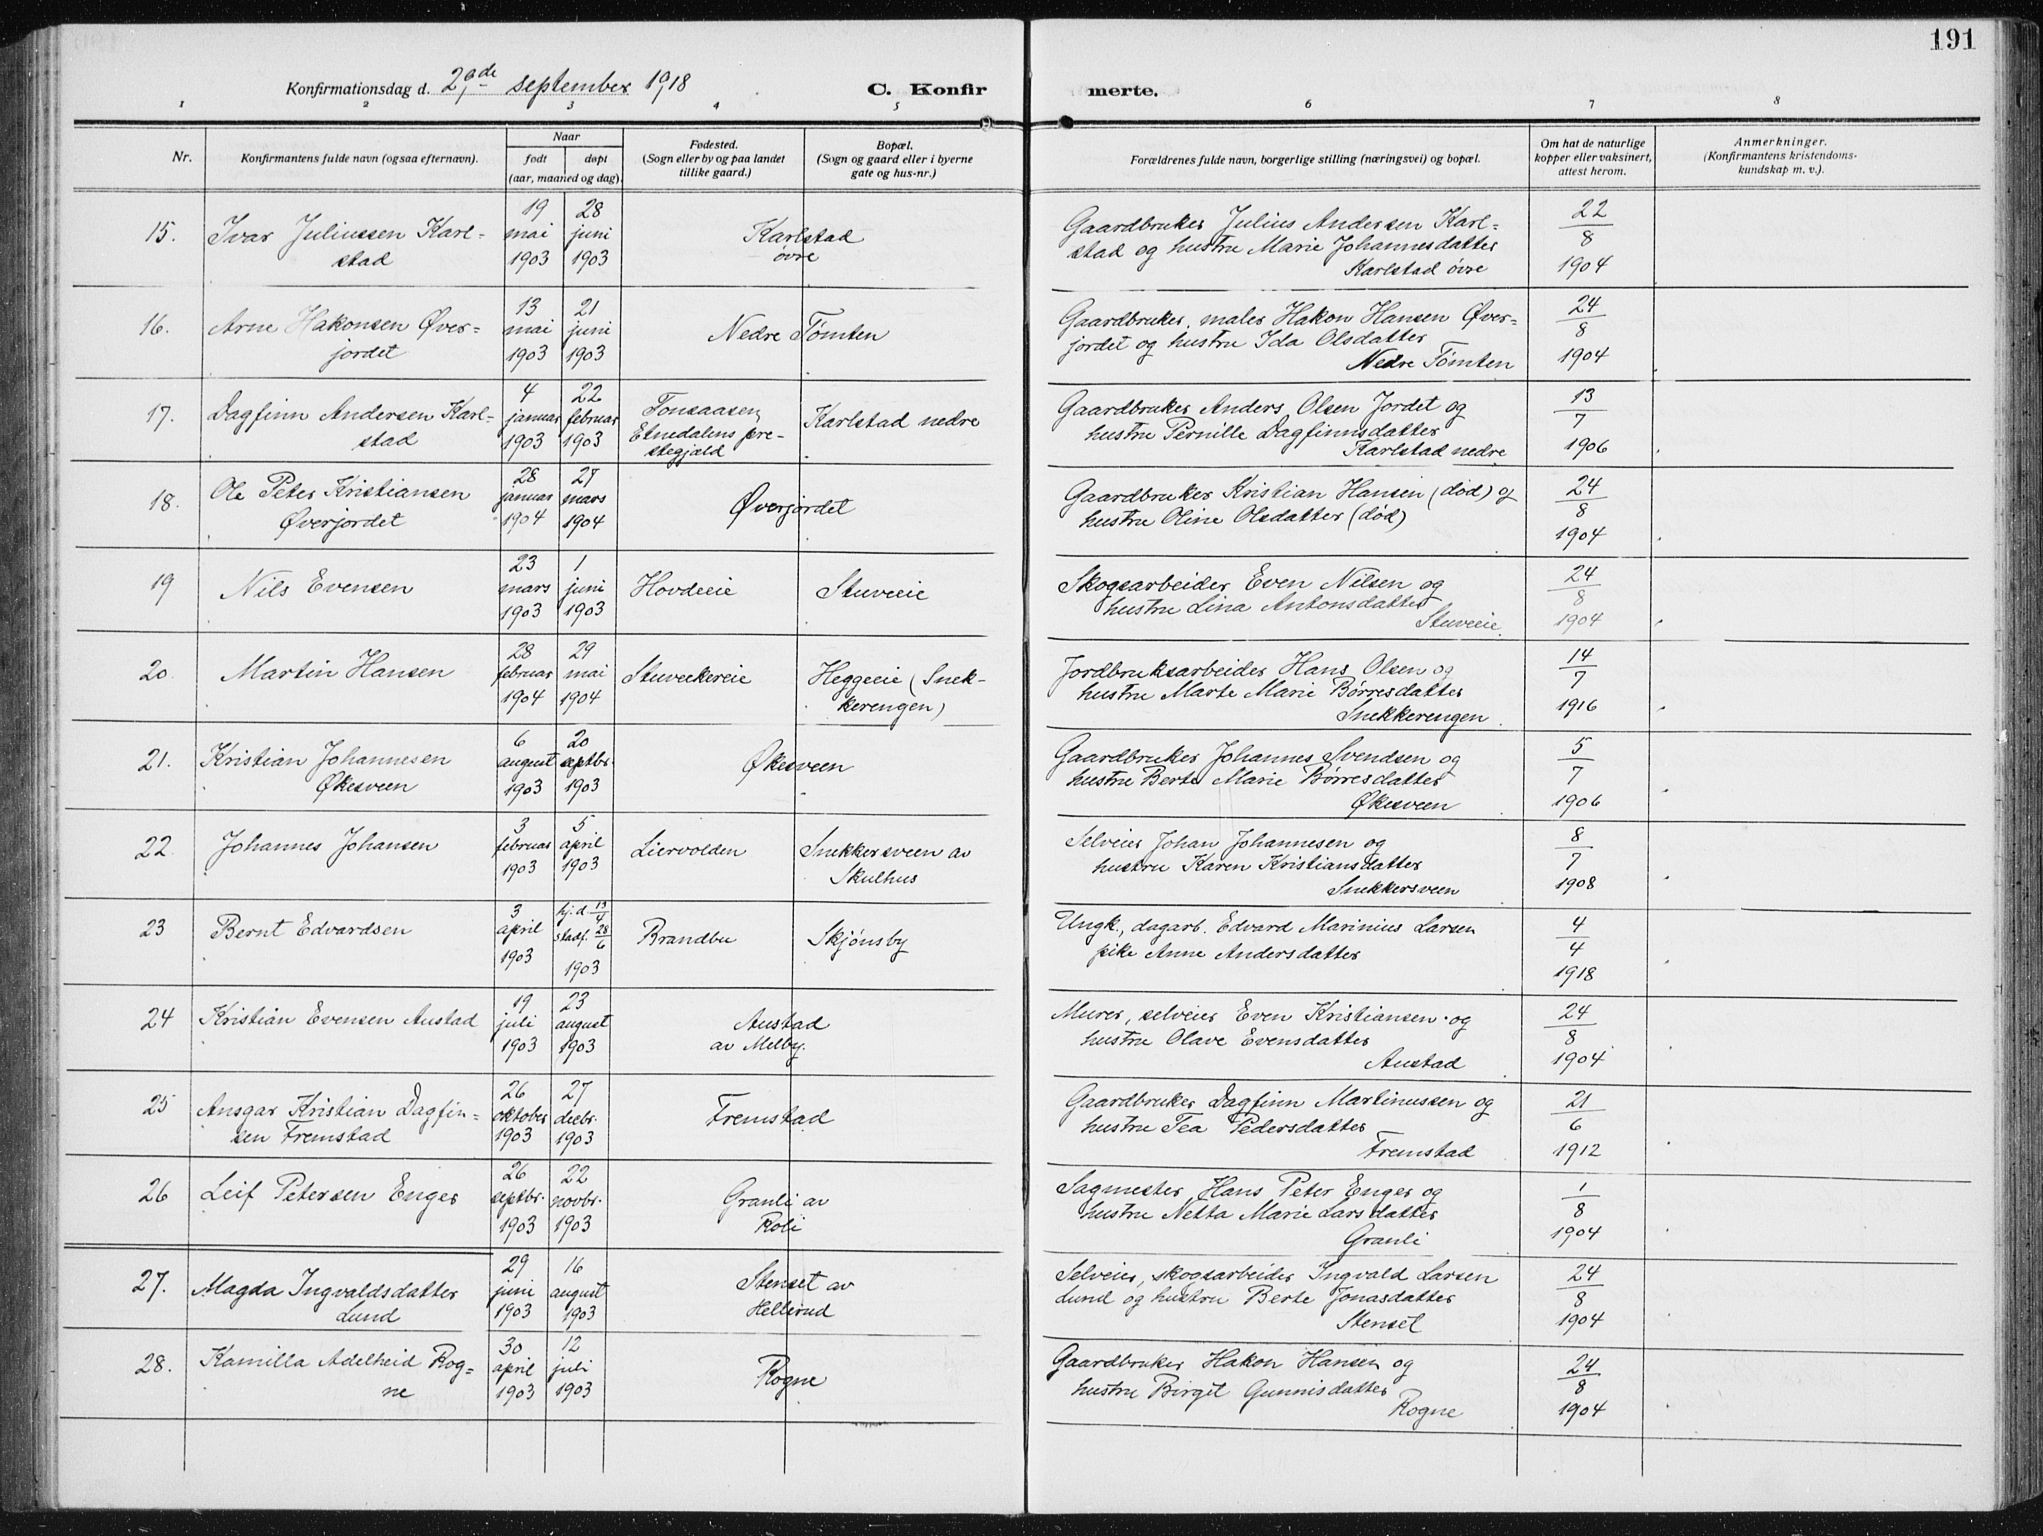 191
Konfirmationsdag d. 29de september 1918
C. Konfirmerte.
1 2 3 4 5 6 7 8
Nr.
Konfirmantens fulde navn (ogsaa efternavn).
Naar
født
døpt
(aar, maaned og dag).
Fødested.
(Sogn eller by og paa landet
tillike gaard.)
Bopæl.
(Sogn og gaard eller i byerne
gate og hus-nr.)
Forældrenes fulde navn, borgerlige stilling (næringsvei) og bopæl.
Om hat de naturlige
kopper eller vaksinert,
attest herom.
Anmerkninger.
(Konfirmantens kristendoms-
kundskap m. v.).
15. Ivar Juliussen Karl-
stad
19 mai 1903
28 juni 1903
Karlstad
øvre
Gaardbruker Julius Andersen Karl-
stad og hustru Marie Johannesdatter
Karlstad øvre
22/8 1904
16. Arne Hakonsen Øver-
jordet
13 mai 1903
21 juni 1903
Nedre Tømten
Gaardbruker, maler Hakon Hansen Øver-
jordet og hustru Ida Olsdatter
Nedre Tømten
24/8 1904
17. Dagfinn Andersen Karl-
stad
4 januar 1903
22 februar 1903
Tonsaasen,
Etnedalens pre-
stegjæld
Karlstad nedre
Gaardbruker Anders Olsen Jordet og
hustru Pernille Dagfinnsdatter
Karlstad nedre
13/7 1906
18. Ole Peter Kristiansen
Øverjordet
28 januar 1904
27 mars 1904
Øverjordet
Gaardbruker Kristian Hansen (død) og
hustru Oline Olsdatter (død)
24/8 1904
19 Nils Evensen
23 mars 1903
1 juni 1903
Hovdeeie
Stuveeie
Skogsarbeider Even Nilsen og
hustru Lina Antonsdatter
Stuveeie
24/8 1904
20. Martin Hansen
28 februar 1904
29 mai 1904
Stuveekereie
Heggeeie (Snek-
kerengen)
Jordbruksarbeider Hans Olsen og
hustru Marte Marie Børresdatter
Snekkerengen
14/7 1916
21. Kristian Johannesen
Økesveen
6 august 1903
20 septbr. 1903
Økesveen
Gaardbruker Johannes Svendsen og
hustru Berte Marie Børresdatter
Økesveen
5/7 1906
22. Johannes Johansen
3 februar 1903
5 april 1903
Liervolden
Snekkersveen av
Skulhus
Selveier Johan Johannesen og
hustru Karen Kristiansdatter
Snekkersveen
8/7 1908
23 Bernt Edvardsen
3 april 1903
hj.d. 13/4 stadf. 28/6 1903
Brandbu
Skjønsby
Ungk., dagarb. Edvard Marinius Larsen
pike Anne Andersdatter
4/4 1918
24 Kristian Evensen Austad
19 juli 1903
23 august 1903
Austad
av Melby.
Murer, selveier Even Kristiansen og
hustru Olave Evensdatter
Austad
24/8 1904
25 Ansgar Kristian Dagfin-
sen Fremstad
26 oktober 1903
27 decbr. 1903
Fremstad
Gaardbruker Dagfinn Martinussen og
hustru Tea Pedersdatter
Fremstad
21/6 1912
26 Leif Petersen Enger
26 septbr. 1903
22 novbr. 1903
Granli av
Roli
Sagmester Hans Peter Enger og
hustru Netta Marie Larsdatter
Granli
1/8 1904
27. Magda Ingvaldsdatter
Lund
29 juni 1903
16 august 1903
Stenset av
Hellerud
Selveier, skogsarbeider Ingvald Larsen
Lund og hustru Berte Jonasdatter
Stenset
24/8 1904
28. Kamilla Adelheid Rog-
ne
30 april 1903
12 juli 1903
Rogne
Gaardbruker Hakon Hansen og
hustru Birgit Gunnisdatter
Rogne
24/8 1904